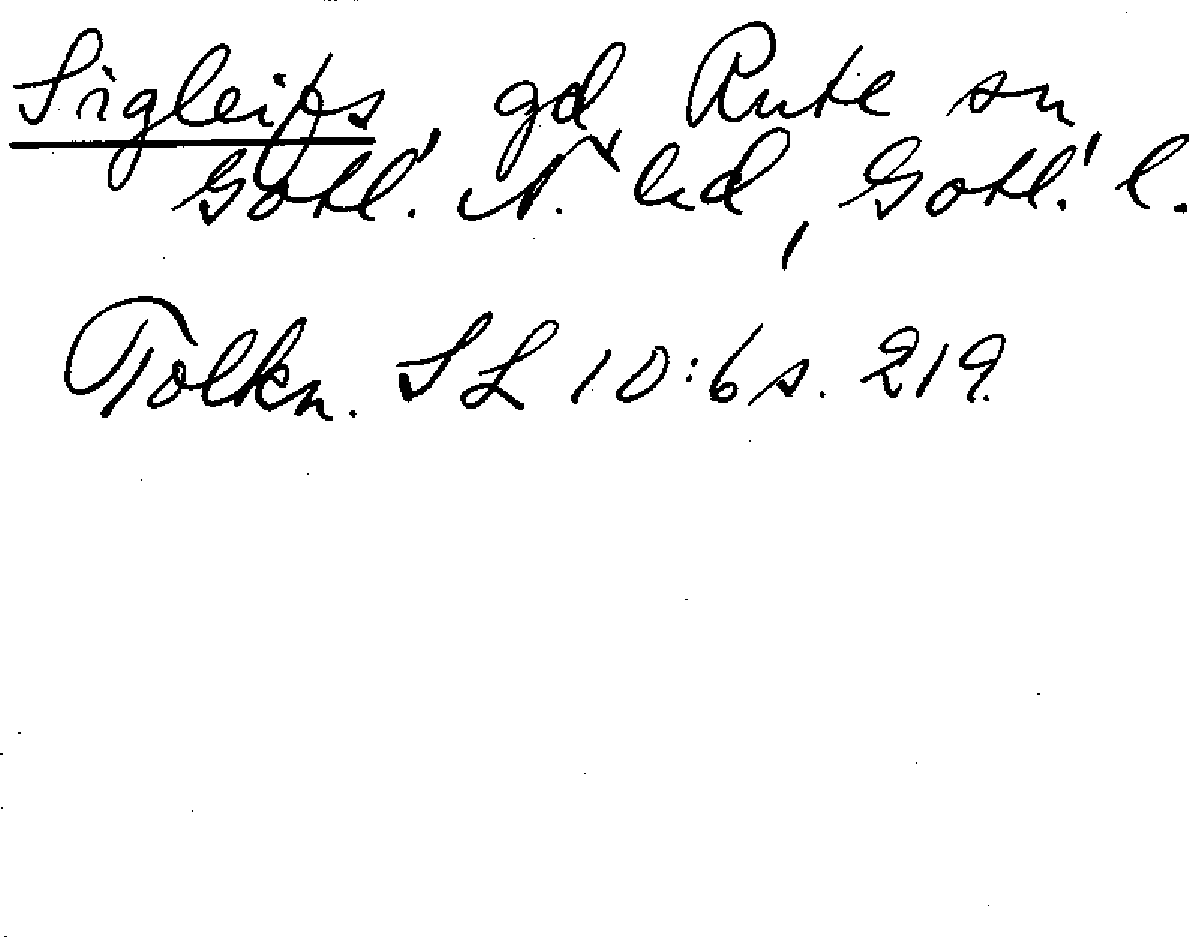 Sigleifs, gd Rute sn
Gotl. N. hd, Gotl. l.
Tolkn. SL 10:6 s. 219.